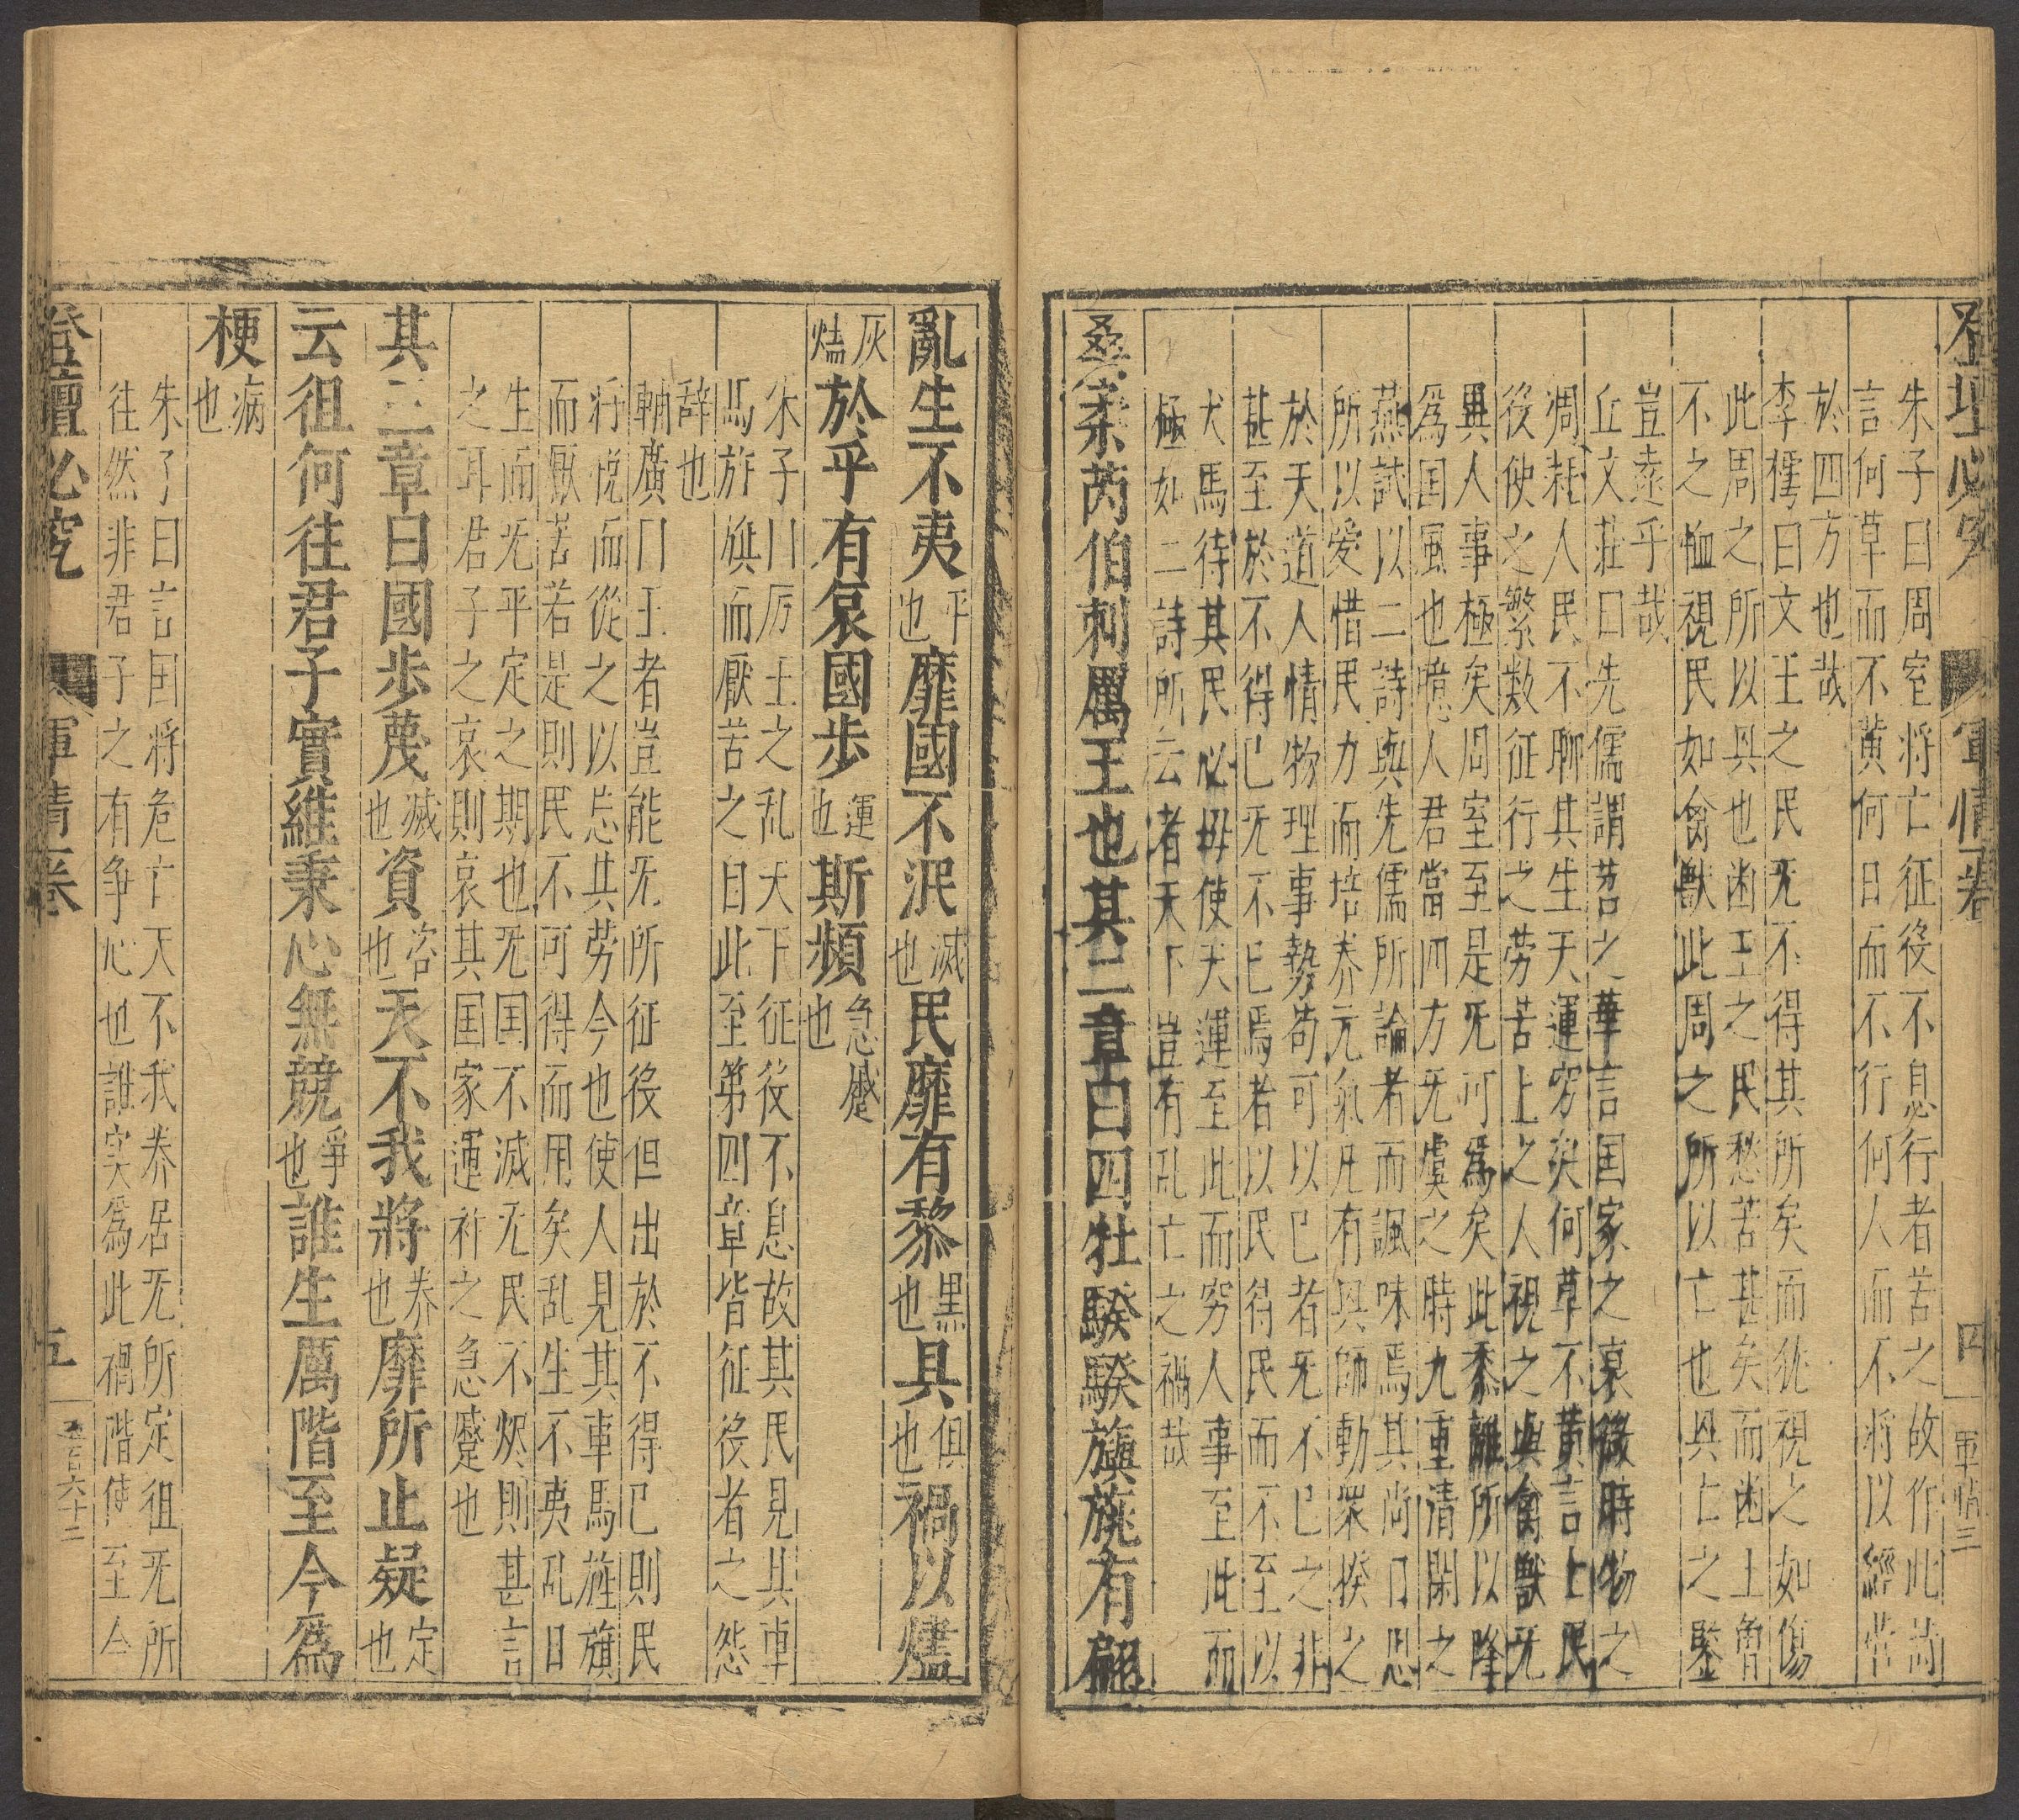 登壇必究 軍情一卷 四 軍情三
朱子曰周室將亡征役不息行者苦之故作此詩
言何草而不黃何日而不行何人而不將以經營
於四方也哉
李樗曰文王之民旡不得其所矣而猶視之如傷
此周之所以興也幽王之民愁苦甚矣而幽王曾
不之恤視民如禽獸此周之所以亡也興亡之鑒
豈遠乎哉
丘文莊曰先儒謂苕之華言囯家之衰微時物之
凋耗人民不聊其生天運窮矣何草不黃言上民
役使之繁数征行之劳苦上之人視之與禽獸旡
異人事極矣周室至是旡可爲矣此黍離所以降
爲囯風也噫人君當四方旡虞之時九重清閑之
燕試以二詩與先儒所論者而諷味焉其尚日思
所以爱惜民力而培养元氣凡有興師動衆揆之
於天道人情物理事勢苟可以已者旡不已之非
甚至於不得已旡不已焉者以民待民而不至以
犬馬待其民必毋使天運至此而穷人事至此而
極如二詩所云者天下豈有乱亡之禍哉
桑柔芮伯刺厲王也其二章曰四牡騤騤旟旐有翩
亂生不夷平也靡國不泯滅也民靡有黎黑也具俱也禍以燼
灰燼於乎有哀國步運也斯頻急蹙也
朱子曰厉王之乱天下征役不息故其民見其車
馬旂旟而厭苦之自此至第四章皆征役者之怨
辞也
輔廣曰王者豈能旡所征役但出於不得已則民
将悦而從之以忘其劳今也使人見其車馬旌旗
而厭苦若是則民不可得而用矣乱生不夷乱日
生而旡平定之期也旡囯不滅旡民不烬則甚言
之耳君子之哀則哀其囯家運祚之急蹙也
其三章曰國步蔑滅也資咨也天不我將养也靡所止疑定也
云徂何往君子實維秉心無競爭也誰生厲階至今爲
梗病也
朱子曰言囯将危亡天不我养居旡所定徂旡所
往然非君子之有争心也誰实爲此禍階使至今
登壇必究 軍情一卷 五 一百六十二